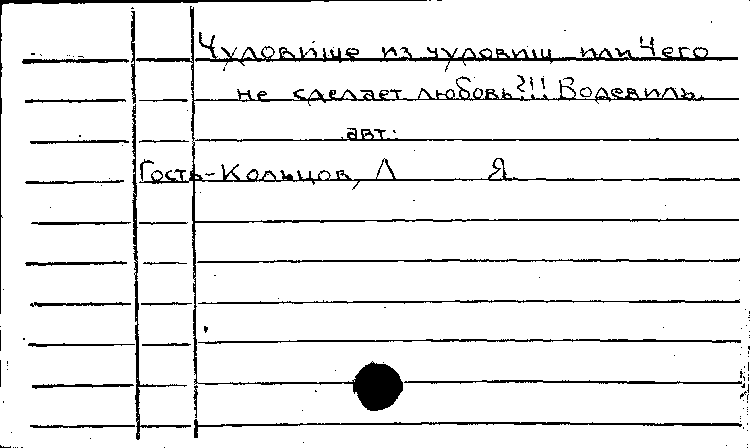 Чудовище из чудовищ или Чего
не сделает любовь?!! Водевиль.
авт.:
Гость-Кольцов, Л Я.